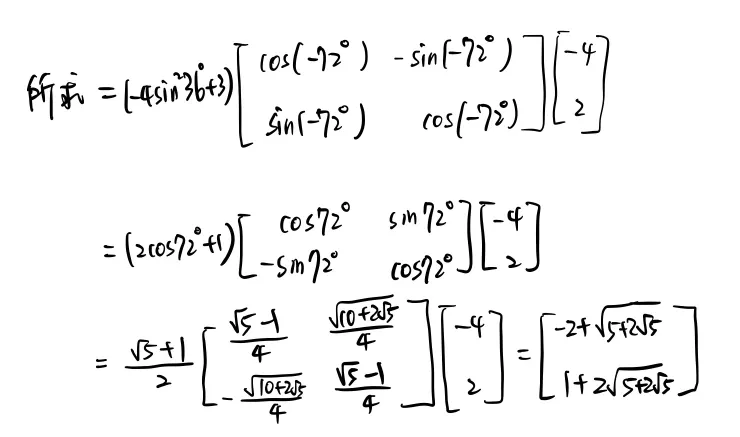 所求 = (-4sin²36°+3) [cos(-72°) -sin(-72°); sin(-72°) cos(-72°)] [-4; 2]
= (2cos72°+1) [cos72° sin72°; -sin72° cos72°] [-4; 2]
= (√5+1)/2 [(√5-1)/4 √(10+2√5)/4; -√(10+2√5)/4 (√5-1)/4] [-4; 2] = [-2+√(5+2√5); 1+2√(5+2√5)]